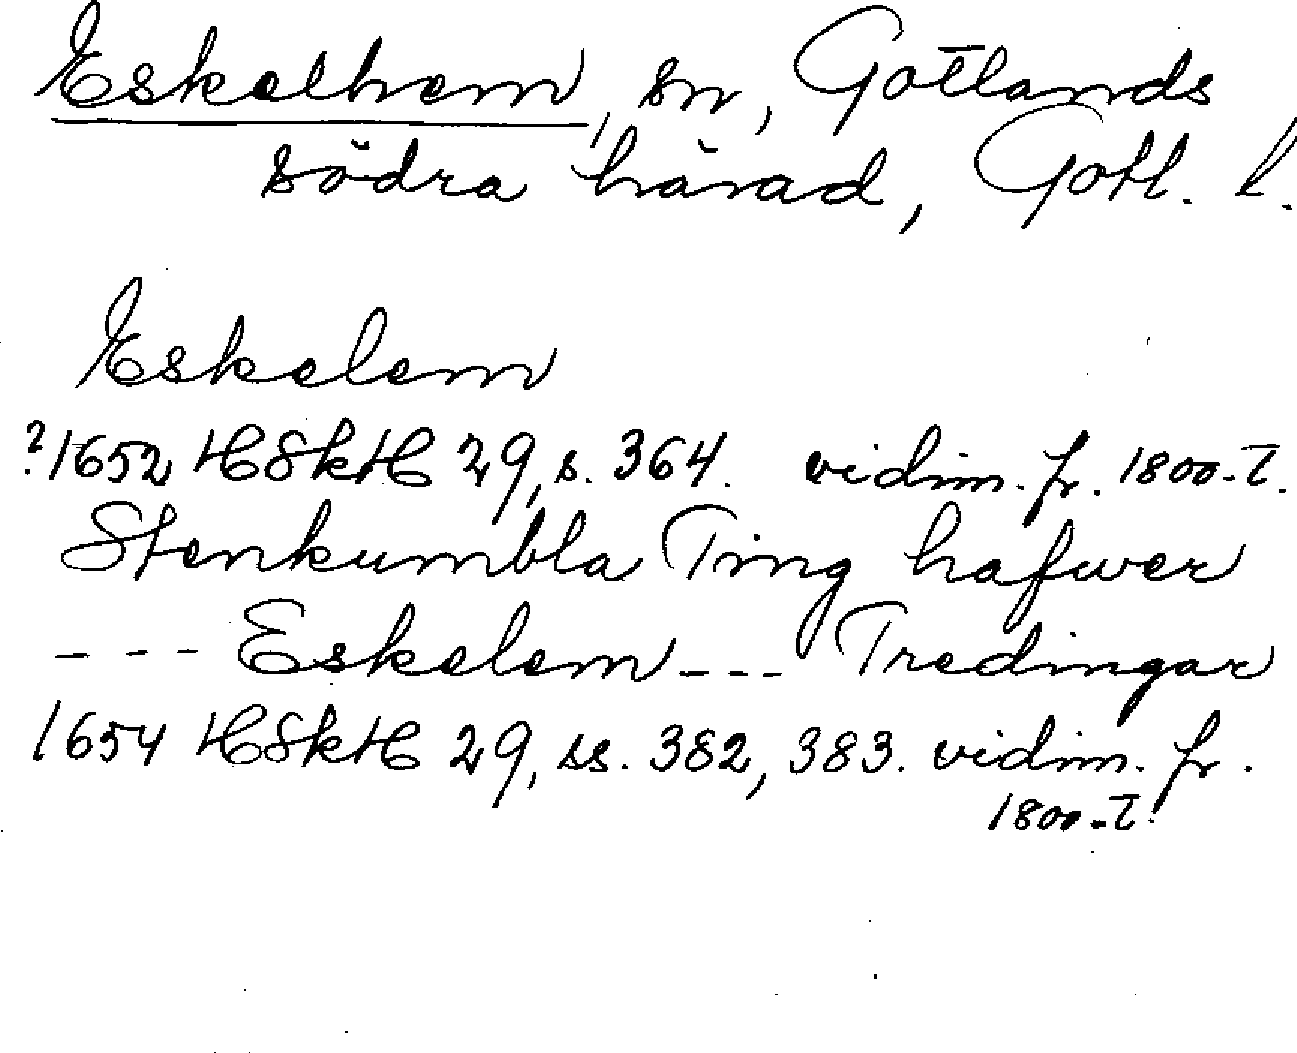 Eskelhem, sn, Gotlands
södra härad, Gotl. l.
Eskelem
?1652 HSkH 29, s. 364. vidim. fr. 1800-t.
Stenkumbla Ting hafwer
--- Eskelem --- Tredingar
1654 HSkH 29, ss. 382, 383. vidim. fr.
1800-t.